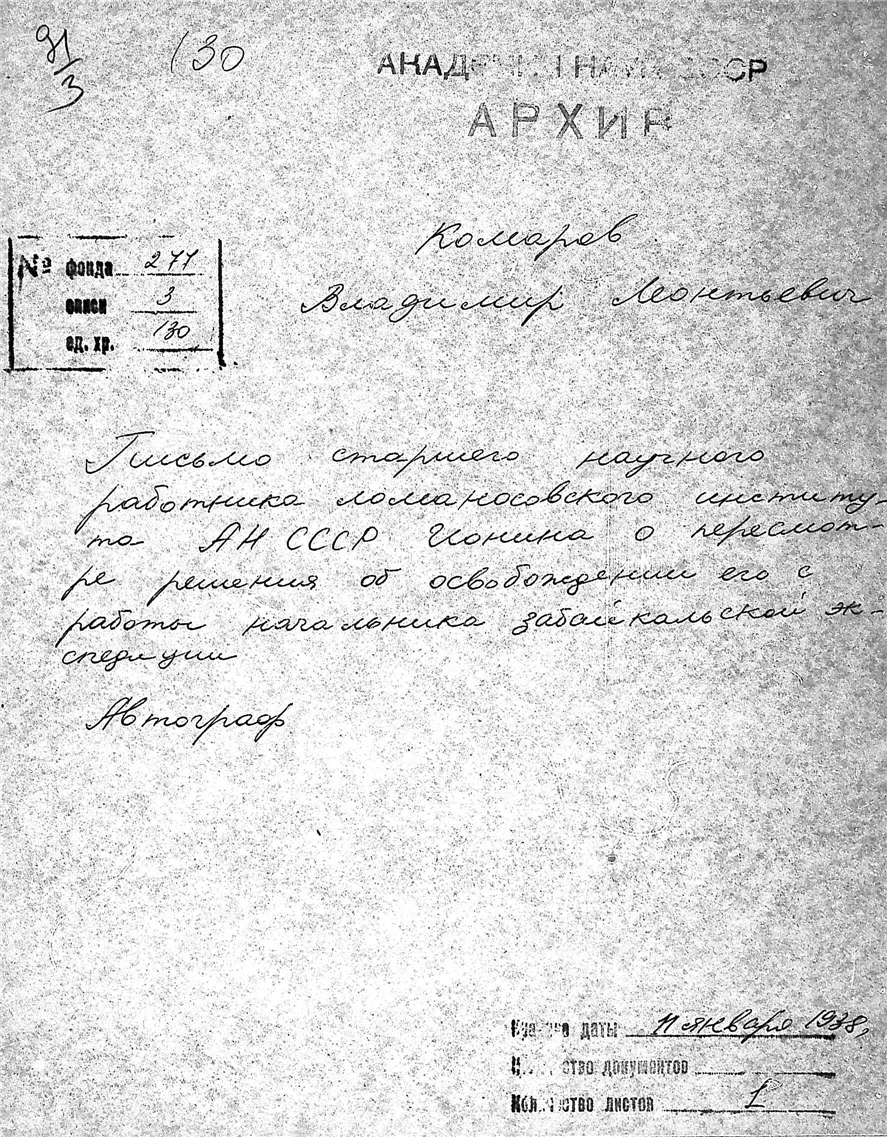 91/3 130
АКАДЕМИЯ НАУК СССР
АРХИВ
Комаров
Владимир Леонтьевич
№ фонда 277
описи 3
ед. хр. 130
Письмо старшего научного
работника ломаносовского институ-
та АН СССР Ионина о пересмот-
ре решения об освобождении его с
работы начальника забайкальской эк-
спедиции
Автограф
даты 11 января 1938г
документов
Количество листов 1